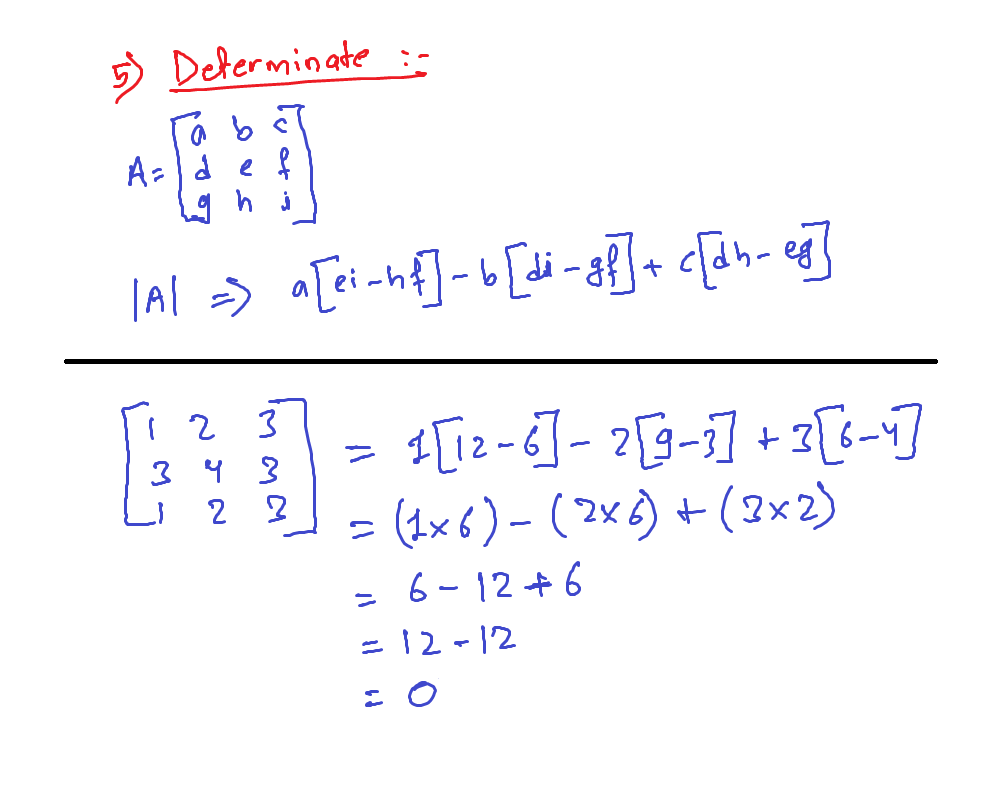 5) Determinate :-
a b c
A= d e f
g h i
|A| ⇒ a[ei-hf] - b[di-gf] + c[dh-eg]
1 2 3 = 1[12-6] - 2[9-3] + 3[6-4]
3 4 3
1 2 3 = (1×6) - (2×6) + (3×2)
= 6 - 12 + 6
= 12 - 12
= 0